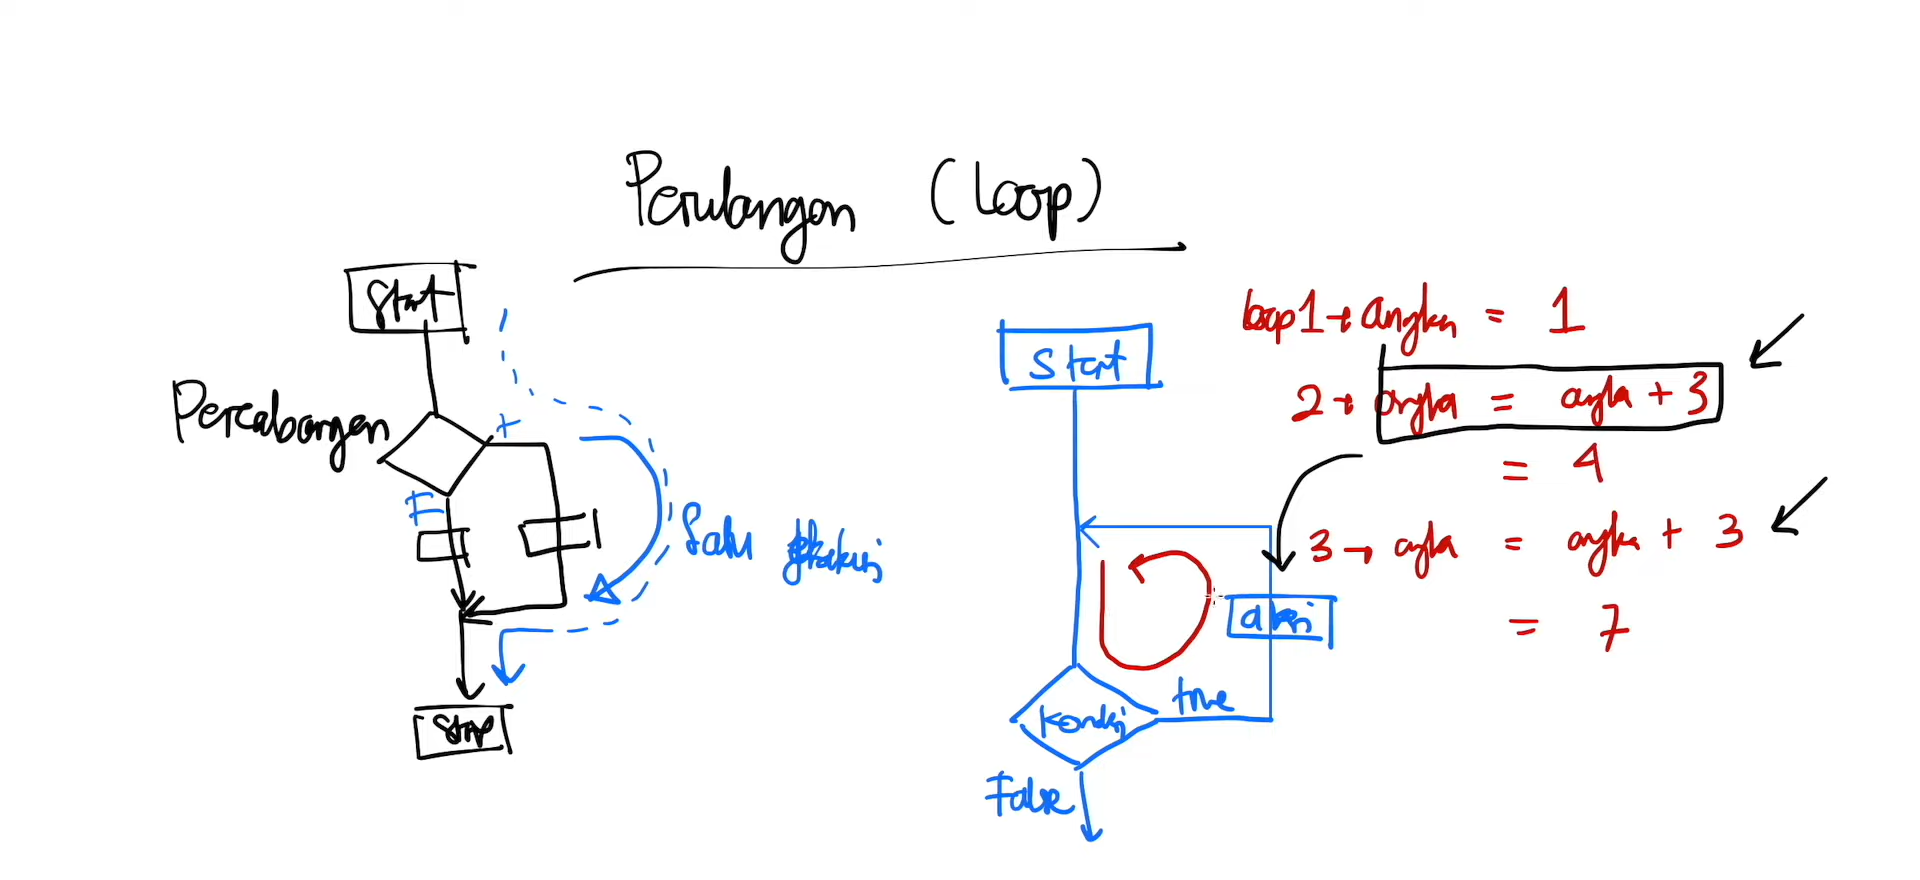 Perulangan (Loop)
Start
Percabangan
+
F
Satu
Stop
Start
aksi
true
Kondisi
False
loop 1 → angka = 1
2 → angka = angka + 3
= 4
3 → angka = angka + 3
= 7